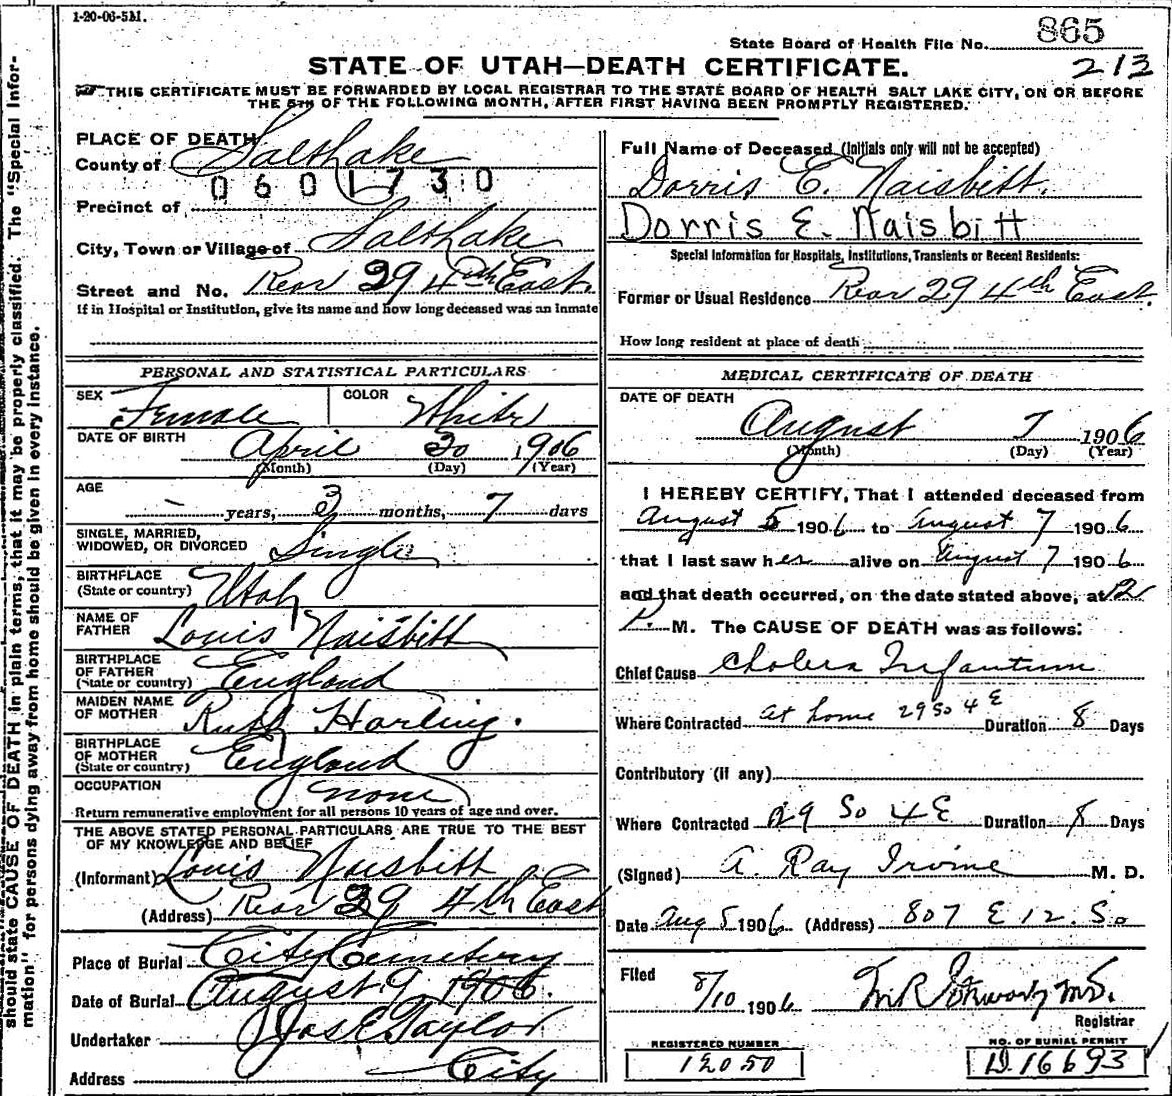 1-20-06-5M.
865
State Board of Health File No.
213
STATE OF UTAH—DEATH CERTIFICATE.
THIS CERTIFICATE MUST BE FORWARDED BY LOCAL REGISTRAR TO THE STATE BOARD OF HEALTH SALT LAKE CITY, ON OR BEFORE
THE 5TH OF THE FOLLOWING MONTH, AFTER FIRST HAVING BEEN PROMPTLY REGISTERED.
should state CAUSE OF DEATH in plain terms, that it may be properly classified. The "Special Infor-
mation" for persons dying away from home should be given in every instance.
PLACE OF DEATH
County of Salt Lake
0601730
Precinct of
City, Town or Village of Salt Lake
Street and No. Rear 29 4th East.
if in Hospital or Institution, give its name and how long deceased was an inmate
PERSONAL AND STATISTICAL PARTICULARS
SEX Female COLOR White
DATE OF BIRTH April 30 1906
(Month) (Day) (Year)
AGE
- years, 3 months, 7 days
SINGLE, MARRIED,
WIDOWED, OR DIVORCED Single
BIRTHPLACE
(State or country) Utah
NAME OF
FATHER Louis Naisbitt
BIRTHPLACE
OF FATHER
(State or country) England
MAIDEN NAME
OF MOTHER Ruth Harling.
BIRTHPLACE
OF MOTHER
(State or country) England
OCCUPATION none
Return remunerative employment for all persons 10 years of age and over.
THE ABOVE STATED PERSONAL PARTICULARS ARE TRUE TO THE BEST
OF MY KNOWLEDGE AND BELIEF
(Informant) Louis Naisbitt
(Address) Rear 29 4th East
Place of Burial City Cemetery
Date of Burial August 9 1906.
Undertaker Jos E Taylor
Address City
Full Name of Deceased (Initials only will not be accepted)
Dorris E. Naisbitt.
Dorris E. Naisbitt
Special Information for Hospitals, Institutions, Transients or Recent Residents:
Former or Usual Residence Rear 29 4th East.
How long resident at place of death
MEDICAL CERTIFICATE OF DEATH
DATE OF DEATH
August 7 1906
(Month) (Day) (Year)
I HEREBY CERTIFY, That I attended deceased from
August 5 1906 to August 7 1906
that I last saw her alive on August 7 1906
and that death occurred, on the date stated above, at 12
P. M. The CAUSE OF DEATH was as follows:
Chief Cause Cholera Infantum
Where Contracted at home 29 So 4 E Duration 8 Days
Contributory (if any)
Where Contracted 29 So 4 E Duration 8 Days
(Signed) A. Ray Irvine M. D.
Date Aug 5 1906 (Address) 807 E 12. So
Filed 8/10 1906
M.D.
Registrar
REGISTERED NUMBER
12050
NO. OF BURIAL PERMIT
D.16693